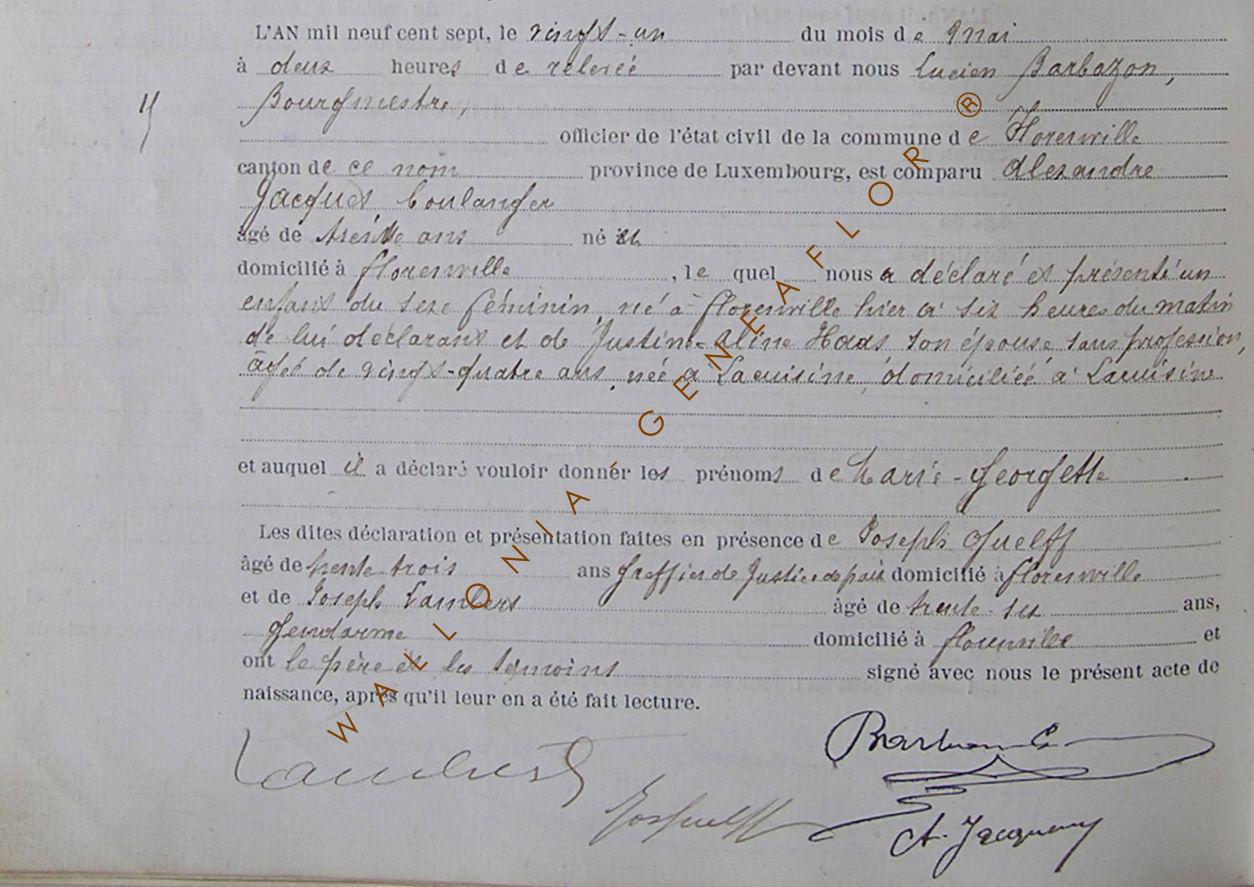 L'AN mil neuf cent sept, le vingt-un du mois de Mai
à deux heures de relevée par devant nous Lucien Barbazon,
Bourgmestre,
officier de l'état civil de la commune de Florenville
canton de ce nom province de Luxembourg, est comparu Alexandre
Jacques, boulanger
âgé de trente ans né
domicilié à Florenville, lequel nous a déclaré et présenté un
enfant du sexe féminin, né à Florenville hier à six heures du matin
de lui déclarant et de Justine-Aline Haas son épouse sans profession,
âgée de vingt-quatre ans, née à Lacuisine, domiciliée à Lacuisine
et auquel il a déclaré vouloir donner les prénoms de Marie-Georgette
Les dites déclaration et présentation faites en présence de Joseph Guelff
âgé de trente trois ans greffier de Justice de paix domicilié à Florenville
et de Joseph Lambert âgé de trente-six ans,
gendarme domicilié à Florenville et
ont le père et les témoins signé avec nous le présent acte de
naissance, après qu'il leur en a été fait lecture.
Lambert
Jos Guelff
A. Jacques
WALLONIA - GENEAFLOR ®